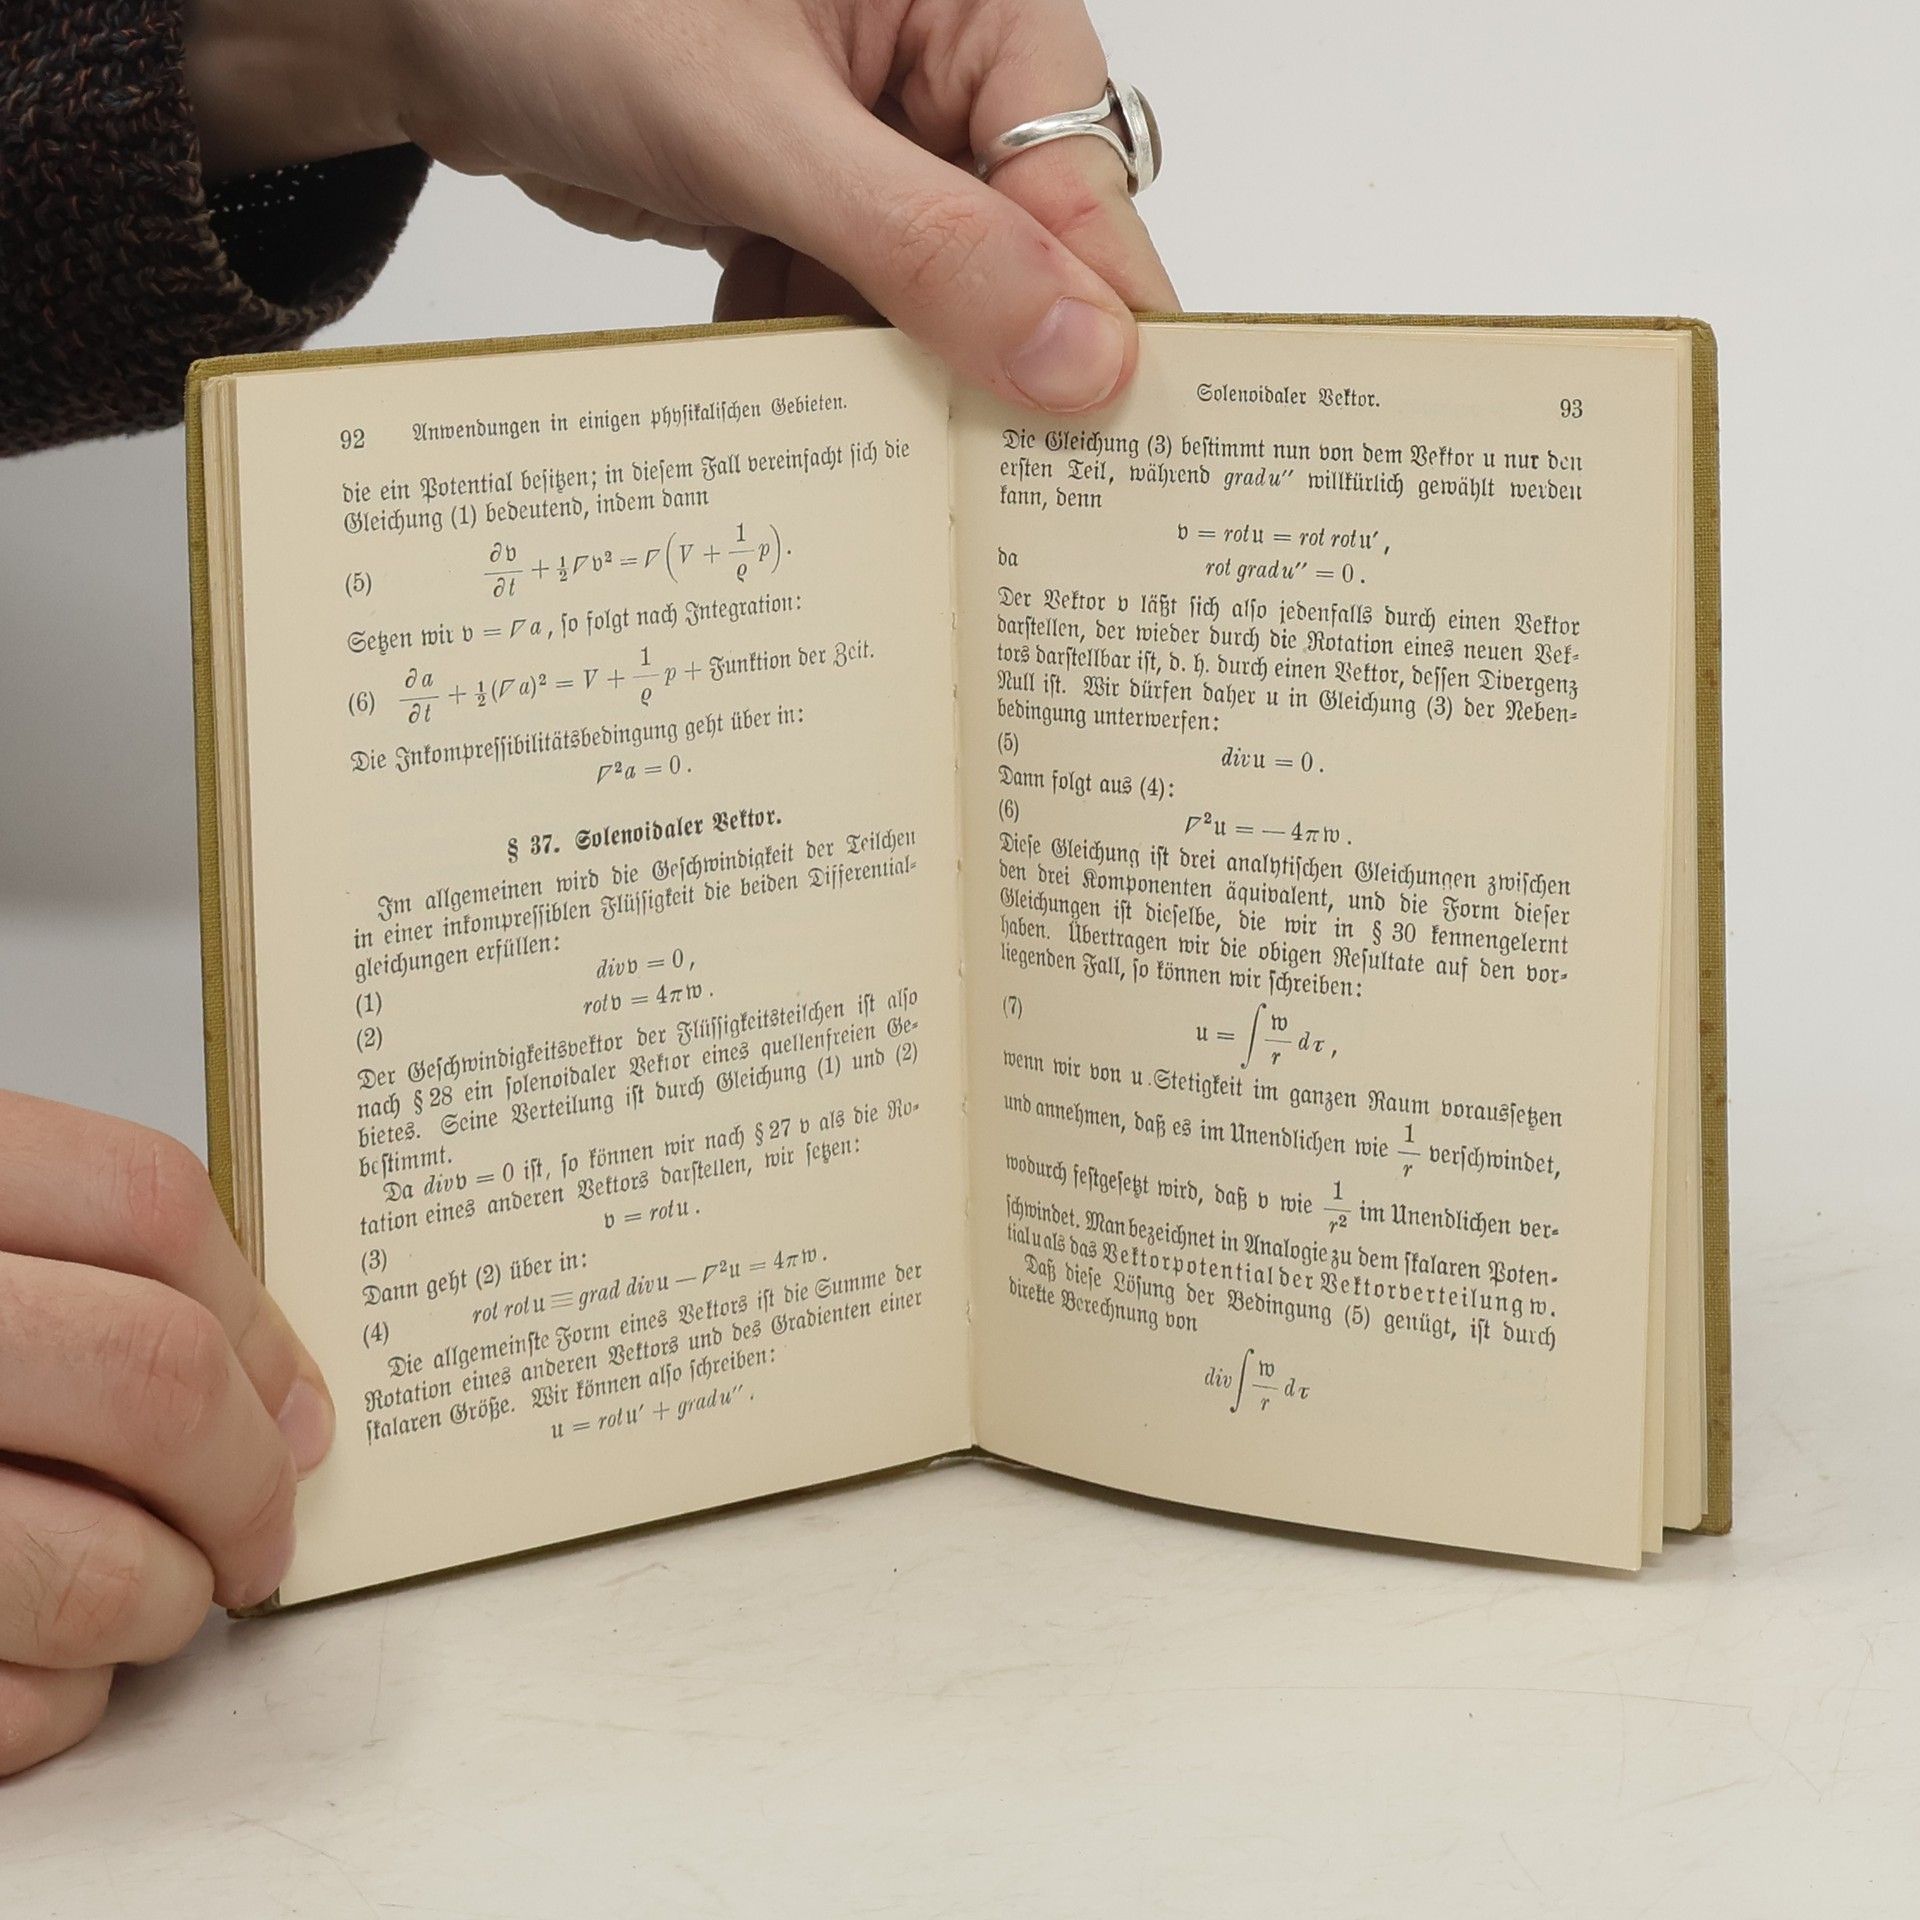 92 Anwendungen in einigen physikalischen Gebieten.
die ein Potential besitzen; in diesem Fall vereinfacht sich die
Gleichung (1) bedeutend, indem dann
(5) ∂𝔳/∂t + ½∇𝔳² = ∇(V + 1/ϱ p).
Setzen wir 𝔳 = ∇a, so folgt nach Integration:
(6) ∂a/∂t + ½(∇a)² = V + 1/ϱ p + Funktion der Zeit.
Die Inkompressibilitätsbedingung geht über in:
∇²a = 0.
§ 37. Solenoidaler Vektor.
Im allgemeinen wird die Geschwindigkeit der Teilchen
in einer inkompressiblen Flüssigkeit die beiden Differential-
gleichungen erfüllen:
(1) div𝔳 = 0,
(2) rot𝔳 = 4π𝔴.
Der Geschwindigkeitsvektor der Flüssigkeitsteilchen ist also
nach § 28 ein solenoidaler Vektor eines quellenfreien Ge-
bietes. Seine Verteilung ist durch Gleichung (1) und (2)
bestimmt.
Da div𝔳 = 0 ist, so können wir nach § 27 𝔳 als die Ro-
tation eines anderen Vektors darstellen, wir setzen:
(3) 𝔳 = rot𝔲.
Dann geht (2) über in:
(4) rot rot𝔲 ≡ grad div𝔲 — ∇²𝔲 = 4π𝔴.
Die allgemeinste Form eines Vektors ist die Summe der
Rotation eines anderen Vektors und des Gradienten einer
skalaren Größe. Wir können also schreiben:
𝔲 = rot𝔲′ + grad𝔲″.
Solenoidaler Vektor. 93
Die Gleichung (3) bestimmt nun von dem Vektor 𝔲 nur den
ersten Teil, während grad𝔲″ willkürlich gewählt werden
kann, denn
𝔳 = rot𝔲 = rot rot𝔲′,
da rot grad𝔲″ = 0.
Der Vektor 𝔳 läßt sich also jedenfalls durch einen Vektor
darstellen, der wieder durch die Rotation eines neuen Vek-
tors darstellbar ist, d. h. durch einen Vektor, dessen Divergenz
Null ist. Wir dürfen daher 𝔲 in Gleichung (3) der Neben-
bedingung unterwerfen:
(5) div𝔲 = 0.
Dann folgt aus (4):
(6) ∇²𝔲 = — 4π𝔴.
Diese Gleichung ist drei analytischen Gleichungen zwischen
den drei Komponenten äquivalent, und die Form dieser
Gleichungen ist dieselbe, die wir in § 30 kennengelernt
haben. Übertragen wir die obigen Resultate auf den vor-
liegenden Fall, so können wir schreiben:
(7) 𝔲 = ∫ 𝔴/r dτ,
wenn wir von 𝔲 Stetigkeit im ganzen Raum voraussetzen
und annehmen, daß es im Unendlichen wie 1/r verschwindet,
wodurch festgesetzt wird, daß 𝔳 wie 1/r² im Unendlichen ver-
schwindet. Man bezeichnet in Analogie zu dem skalaren Poten-
tial 𝔲 als das Vektorpotential der Vektorverteilung 𝔴.
Daß diese Lösung der Bedingung (5) genügt, ist durch
direkte Berechnung von
div ∫ 𝔴/r dτ